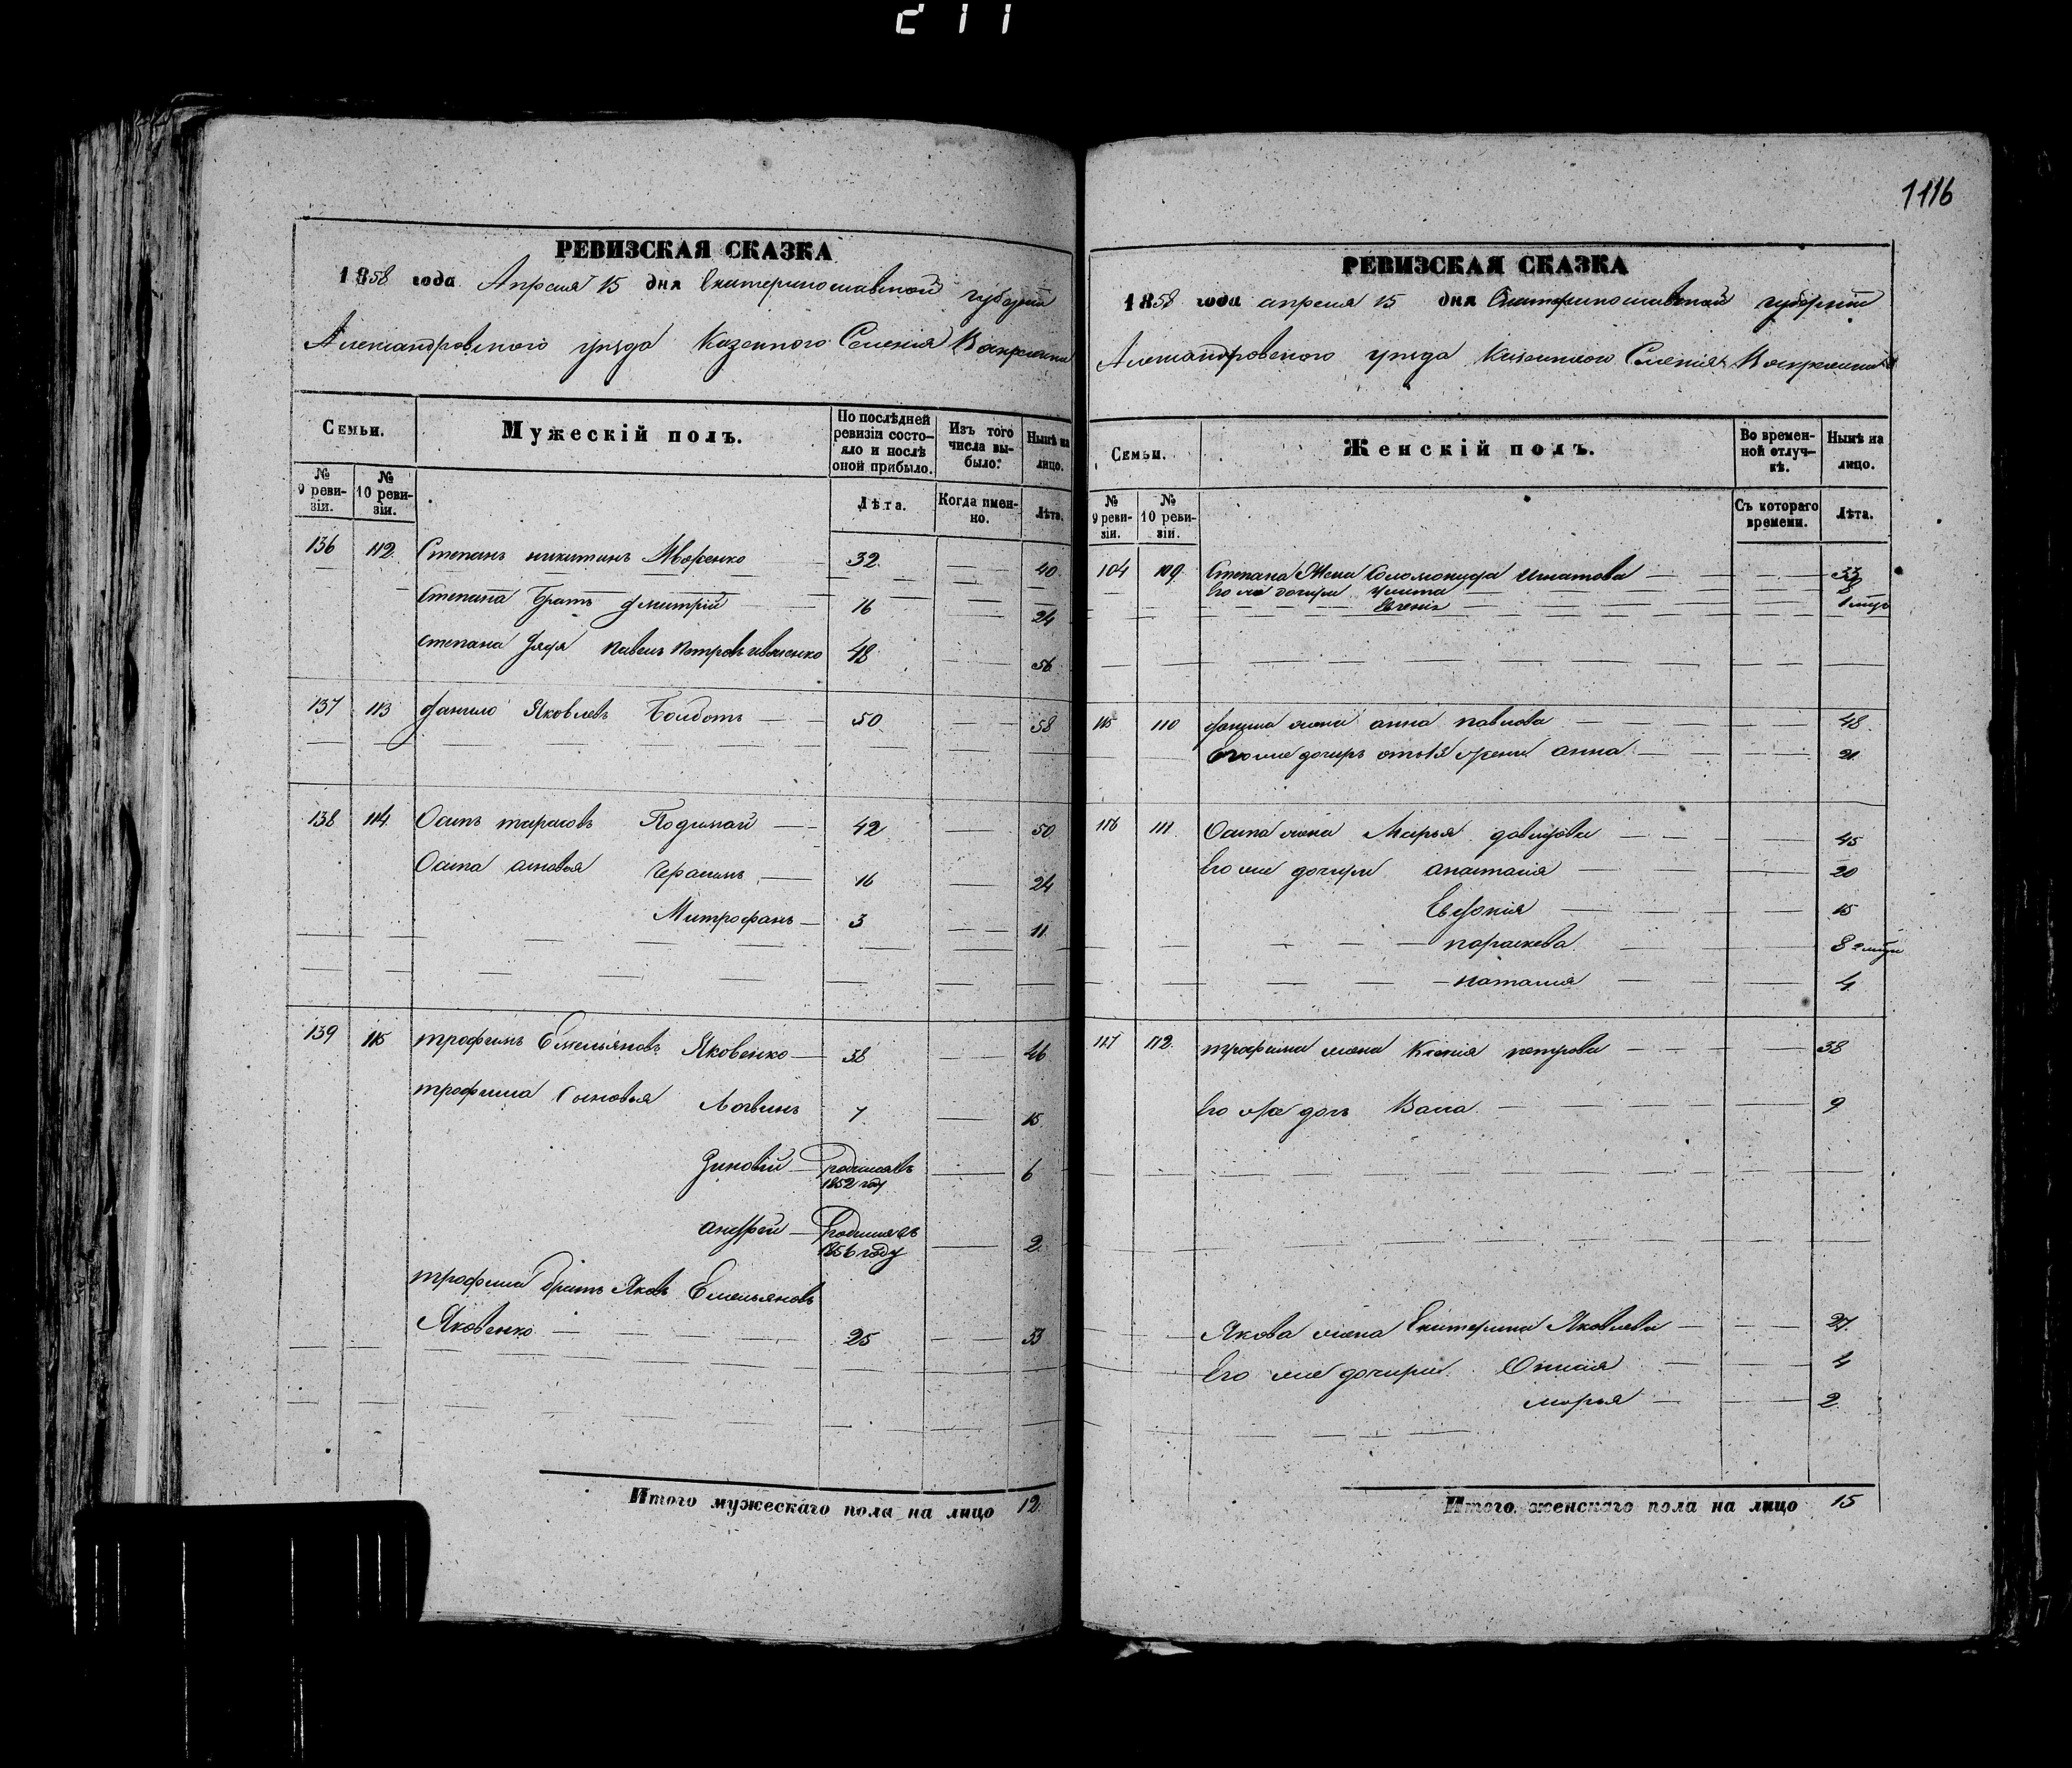 211
РЕВИЗСКАЯ СКАЗКА
1858 года Апреля 15 дня Екатеринославской губернии
Александровского уезда Казенного Селения
Семьи.
Мужескій полъ.
По послѣдней ревизіи состояло и послѣ оной прибыло.
Изъ того числа выбыло.
Нынѣ на лицо.
№ 9 ревизіи.
№ 10 ревизіи.
Лѣта.
Когда именно.
Лѣта.
136 112. Степанъ никитинъ 32 40
Степана Братъ дмитрій 16 24
Степана дядя Павелъ Петровъ 48 56
137 113 данило Яковлевъ 50 58
138 114. Осипъ тарасовъ 42 50
Осипа сыновья Герасимъ 16 24
Митрофанъ 3 11
139 115 трофимъ Емельяновъ Яковенко 38 46
трофима Сыновья Логвинъ 7 15
Зиновій родился въ 1852 году 6
андрей Родился въ 1856 году 2
трофима братъ Яковъ Емельяновъ
Яковенко 25 33
Итого мужескаго пола на лицо 12.
1116
РЕВИЗСКАЯ СКАЗКА
1858 года апреля 15 дня Екатеринославской губернии
Александровского уезда Казенного Селения
Семьи.
Женскій полъ.
Во временной отлучкѣ.
Нынѣ на лицо.
№ 9 ревизіи.
№ 10 ревизіи.
Съ котораго времени.
Лѣта.
104 109. Степана Жена Соломонида Игнатова 33
Его же дочери улита
Евгенія
110 данила жена анна павлова 48
Его же дочерь отъ 1й жены анна 21
111. Осипа жена Марья 45
Его же дочери анастасія 20
Евдокія 15
параскева 8
наталія 4
112. трофима жена Ксенія петрова 38
Его же дочь Васса 9
Якова жена Екатерина Яковлева 27.
Его же дочери 4
марья 2
Итого женскаго пола на лицо 15